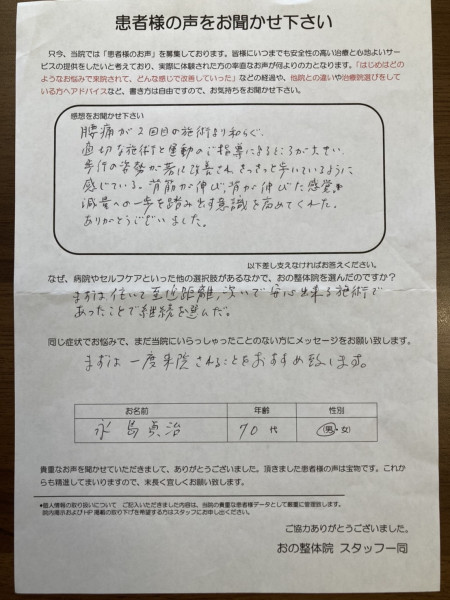 患者様の声をお聞かせ下さい
只今、当院では「患者様のお声」を募集しております。皆様にいつまでも安全性の高い治療と心地よいサー
ビスの提供をしたいと考えており、実際に体験された方の率直なお声が何よりの力となります。「はじめはど
のようなお悩みで来院されて、どんな感じで改善していった」などの経過や、他院との違いや治療院選びをして
いる方へアドバイスなど、書き方は自由ですので、お気持ちをお聞かせ下さい。
感想をお聞かせ下さい
腰痛が2回目の施術より和らぐ、
適切な施術と運動のご指導によるところが大きい。
歩行の姿勢が若に改善され、さっさっと歩いているように
感じている。背筋が伸び、背が伸びた感覚。
減量への一歩を踏み出す意識を高めてくれた。
ありがとうございました。
以下差し支えなければお答えください。
なぜ、病院やセルフケアといった他の選択肢があるなかで、おの整体院を選んだのですか？
まずは住いと至近距離、次いで安心出来る施術で
あったことで継続を選んだ。
同じ症状でお悩みで、まだ当院にいらっしゃったことのない方にメッセージをお願い致します。
まずは一度来院されることをおすすめ致します。
お名前 年齢 性別
永島 治 70代 男・女
貴重なお声を聞かせていただきまして、ありがとうございました。頂きました患者様の声は宝物です。これか
らも精進してまいりますので、末長く宜しくお願い致します。
*個人情報の取り扱いについて ご記入いただきました内容は、当院の貴重な患者様データとして厳重に管理致します。
院内掲示およびHP掲載の取り下げを希望する方はスタッフにお申し出ください。
ご協力ありがとうございました。
おの整体院 スタッフ一同